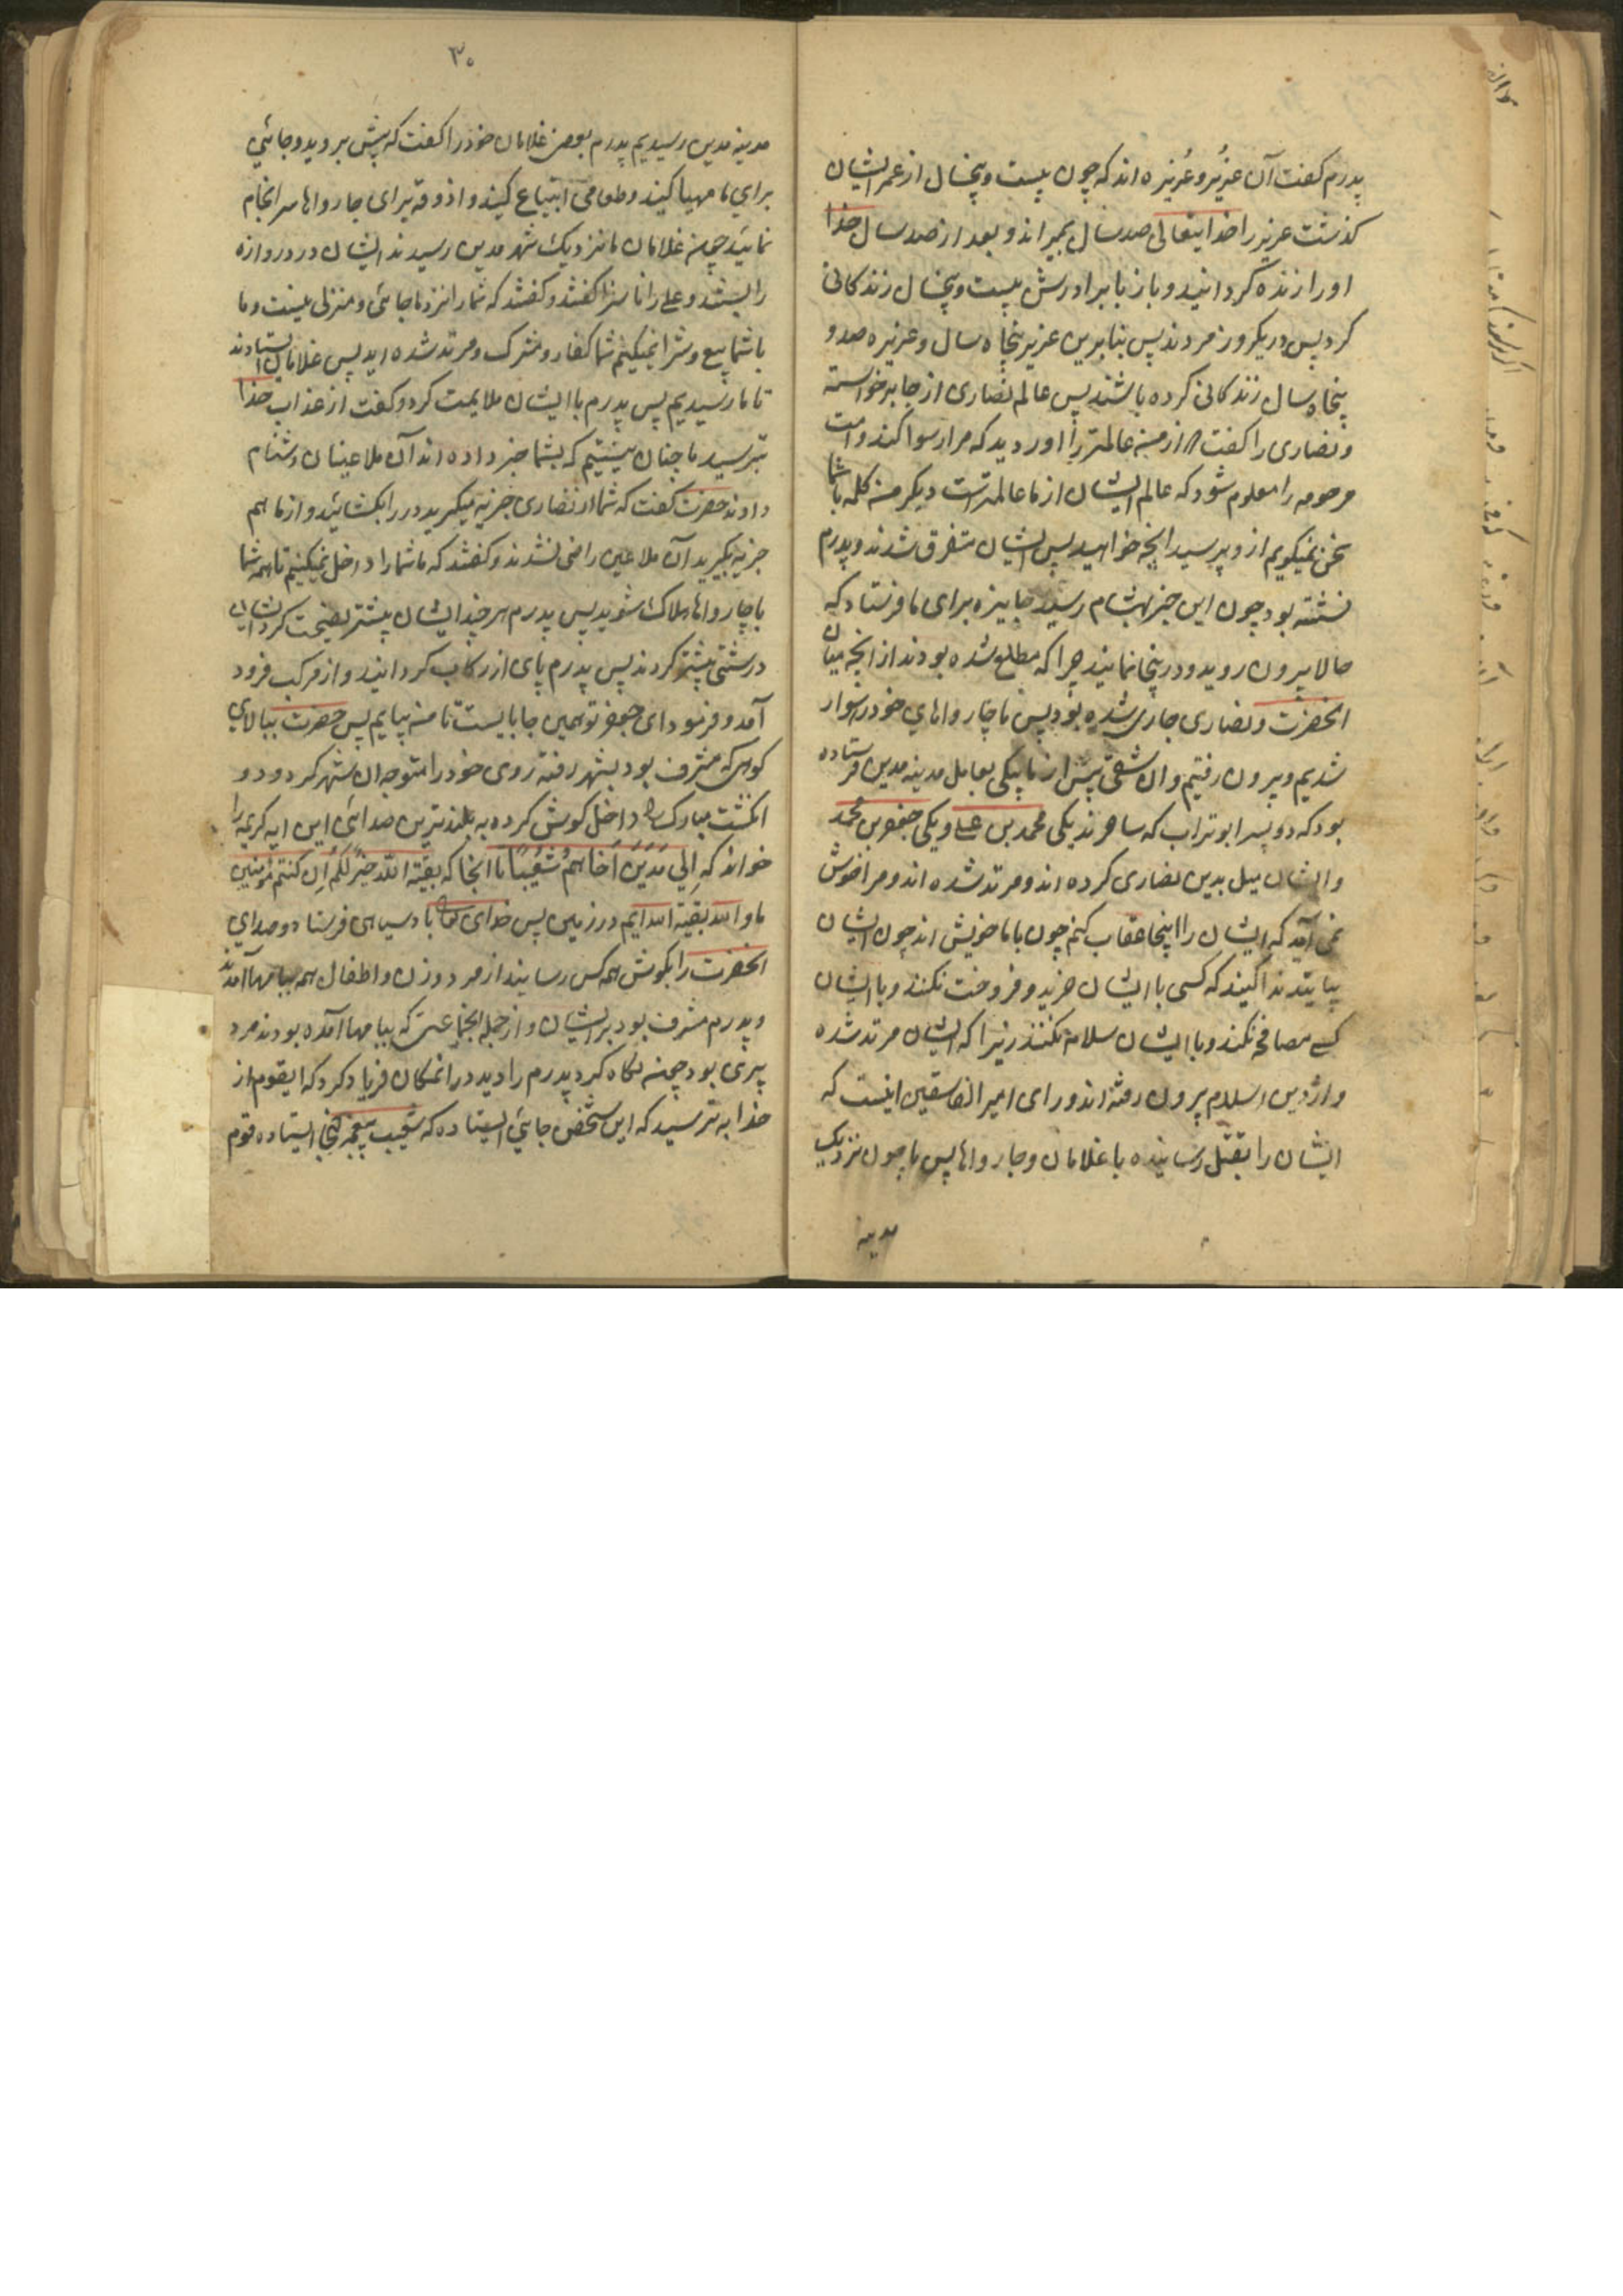 پدرم کفت آن عُزیر و عُزیره اند که چون بیست و پنجسال از عمر ایشان
کذشت عزیر را خدایتعالی صد سال بمیراند و بعد از صد سال خدا
او را زنده کردانید و باز با برادرش بیست و پنجسال زندکانی
کرد پس در یکروز مردند پس بنابرین عزیر پنجاه سال و عزیره صد و
پنجاه سال زندکانی کرده باشند پس عالم نصاری از جا برخواسته
و نصاری را کفت از من عالمتر را آوردید که مرا رسوا کند و امت
مرحومه را معلوم شود که عالم ایشان از ما عالمترست دیکر من کلمه باشما
سخن نمیکویم از و بپرسید انچه خواهید پس ایشان متفرق شدند و پدرم
نشسته بود چون این خبر بهشام رسید جایزه برای ما فرستاد که
حالا بیرون روید و در ینجا نمانید چرا که مطلع شده بودند از انچه میان
انحضرت و نصاری جاری شده بود پس ما چارواهای خود را سوار
شدیم و بیرون رفتیم و ان شقی پیش از ما پیکی بعامل مدینه مدین فرستاده
بود که دو پسر ابوتراب که ساحرند یکی محمد بن علی و یکی جعفر بن محمد
و ایشان میل بدین نصاری کرده اند و مرتد شده اند و مرا خوش
نمی آمد که ایشان را اینجا عقاب کنم چون با ما خویش اند چون ایشان
بیایند ندا کنید که کسی با ایشان خرید و فروخت نکند و با ایشان
کسے مصافحه نکند و با ایشان سلام نکنند زیرا که ایشان مرتد شده
و از دین اسلام بیرون رفته اند و رای امیر الفاسقین اینست که
ایشان را بقتل رسانیده با غلامان و چارواها پس ما چون نزدیک
مدینه
۳۰
مدینه مدین رسیدیم پدرم بعضی غلامان خود را کفت که پیش بروید و جائی
برای ما مهیا کنید و طعامی ابتیاع کنید و اذوقه برای چارواها سرانجام
نمائید چون غلامان ما نزدیک شهر مدین رسیدند ایشان در دروازه
را بستند و علی را ناسزا کفتند و کفتند که شما را نزد ما جائی و منزلی نیست و ما
با شما بیع و شرا نمیکنیم شما کفار و مشرک و مرتد شده اید پس غلامان ایستادند
تا ما رسیدیم پس پدرم با ایشان ملایمت کرد و کفت از عذاب خدا
بترسید ما چنان نیستیم که بشما خبر داده اند آن ملاعینان دشنام
دادند حضرت کفت که شما از نصاری جزیه میکیرید در را بکشائید و از ما هم
جزیه بکیرید آن ملاعین راضی نشدند و کفتند که ما شما را داخل نمیکنیم تا همه شما
با چارواها هلاک شوید پس پدرم هر چند ایشان بیشتر نصیحت کرد ایشان
درشتی بیشتر کردند پس پدرم پای از رکاب کردانید و از مرکب فرود
آمد و فرمود ای جعفر تو همین جا بایست تا من بیایم پس حضرت ببالای
کوهی که مشرف بود بشهر رفته روی خود را متوجه ان شهر کرد و دو
انکشت مبارک را داخل کوش کرده به بلندترین صدائی این ایه کریمه را
خواند که اِلی مَدْیَنَ اَخاهُمْ شُعَیْبًا تا انجا که بقیّة الله خیر لکم ان کنتم مؤمنین
ما والله بقیّة الله ایم در زمین پس خدای تعالی باد سیاهی فرستاد و صدای
انحضرت را بکوش همه کس رسانید از مرد و زن و اطفال همه ببامها آمدند
و پدرم مشرف بود بر ایشان و از جمله انجماعتی که ببامها آمده بودند مرد
پیری بود چون نکاه کرد پدرم را دید در انمکان فریاد کرد که ایقوم از
خدا به ترسید که این شخص جائی ایستاده که شعیب پیغمبر انجا ایستاده قوم